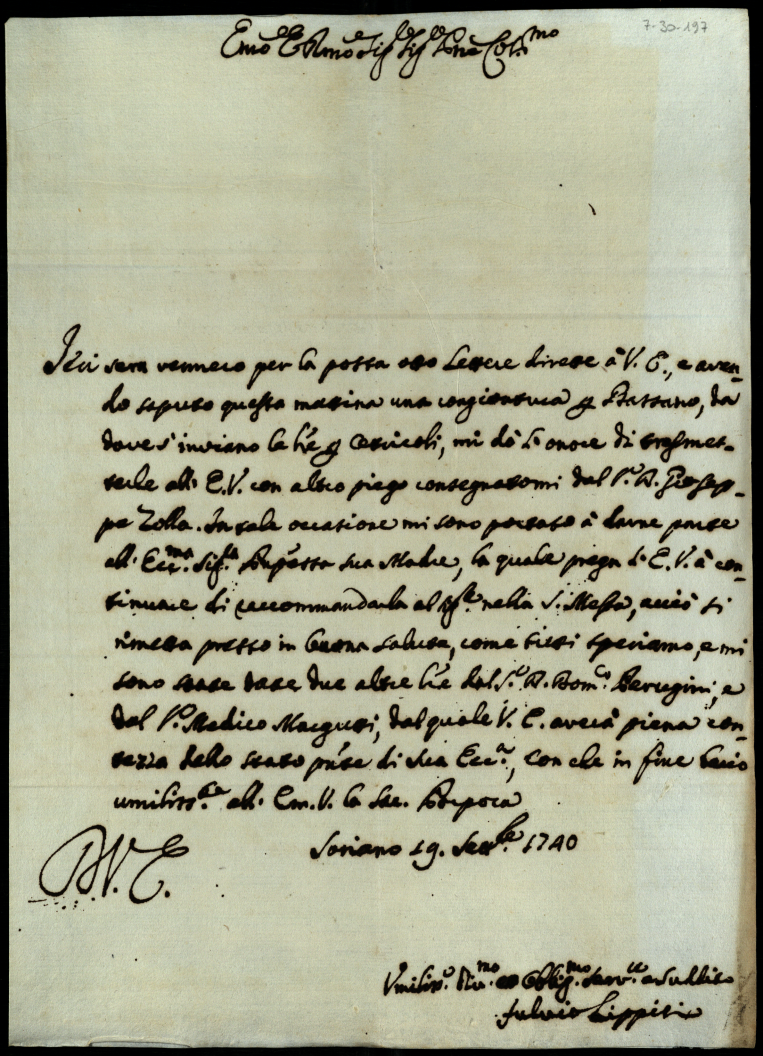 7-30-197
Em̃o E Rmo Sig.r Sig.r Prõne Col.mo
Ieri sera vennero per la posta otto lettere dirette à V. E., e aven-
do saputo questa mattina una congiontura p Bassano, da
dove s'inviano le l're p Cervicoli, mi dò l'onore di trasmet-
terle all' E.V. con altro piego consegnatomi dal S.r D. Giosep-
pe Zolla. In tale occasione mi sono portato à darne parte
all' Ecc.ma Sig.ra Sua Madre, la quale prega l' E. V. à con-
tinuare di raccommandarla al Sig.re nella S. Messa, acciò si
rimetta presto in buona salute, come tutti speriamo, e mi
sono state date due altre l're dal S.r D. Dom.co Perugini, e
dal S.r Medico Marguti, dal quale V. E. averà piena con-
tezza dello stato pñte di Sua Ecc.a, con che in fine bacio
umiliss.te all' Em. V. la Sac. Porpora
Soriano 19. Sett.bre 1740
D V. E.
Umiliss.o Div.mo et Oblig.mo Serv.re e Suddito
Fulvio Lippiti